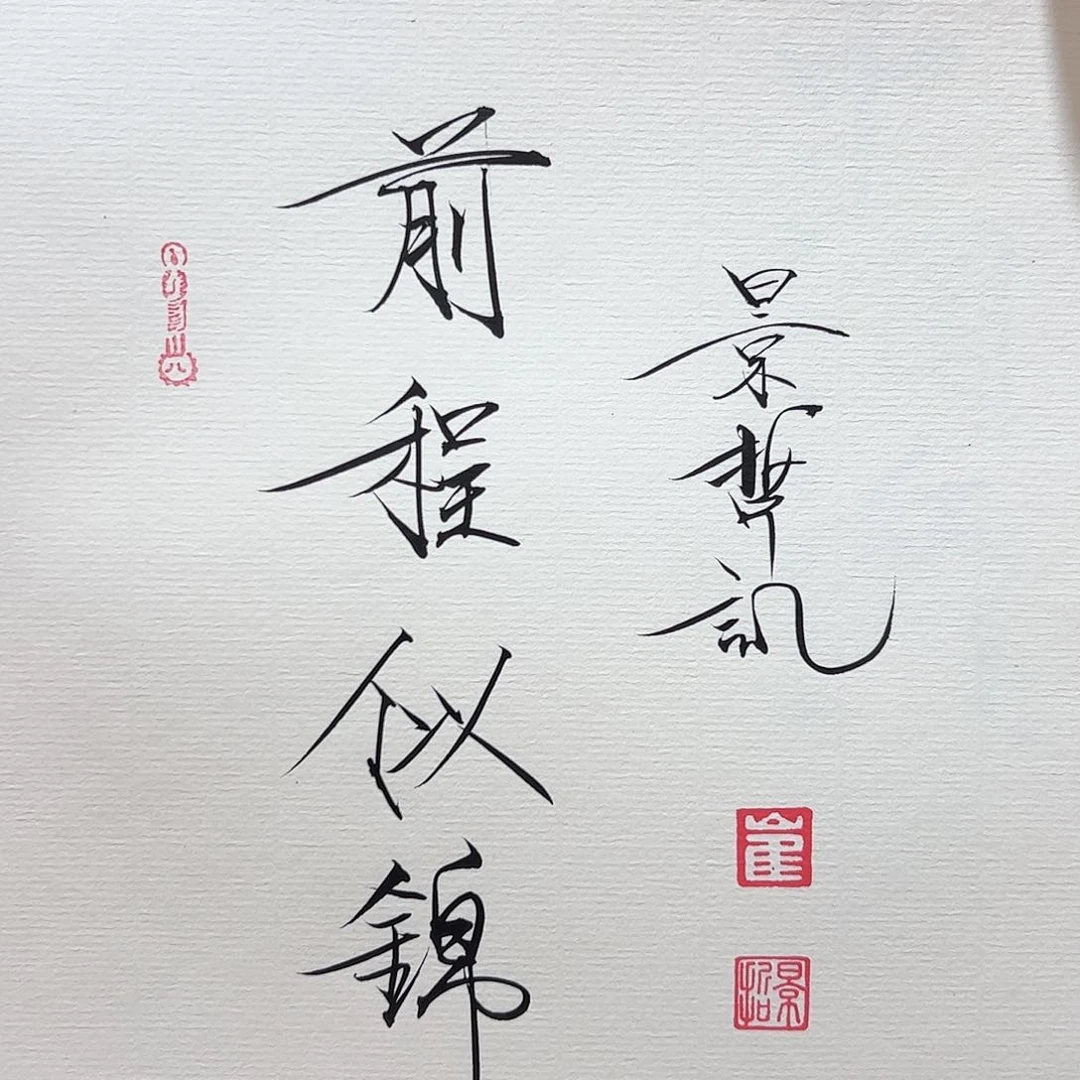 前程似錦
景哲記
崔
景哲